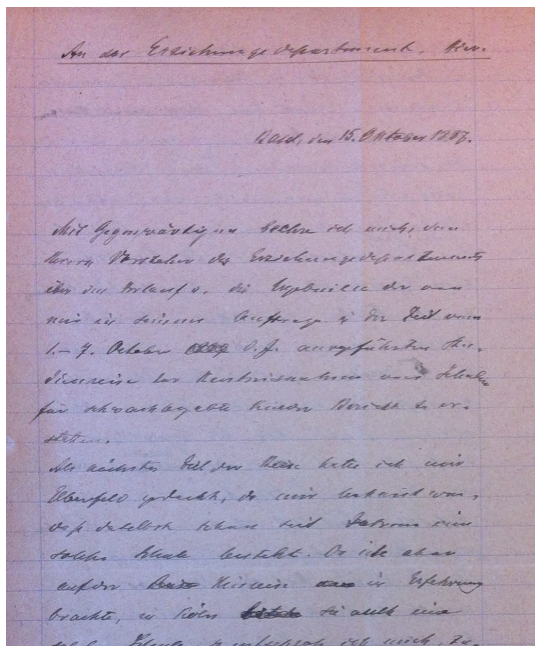 An das Erziehungsdepartement. Hier.
Basel, den 15. Oktober 1887.
Mit Gegenwärtigem beehre ich mich, dem
Herrn Vorsteher des Erziehungsdepartements
über den Verlauf u. die Ergebnisse der von
mir in seinem Auftrage in der Zeit vom
1.– 7. October d. J. ausgeführten Stu-
dienreise zur Kenntnisnahme von Schulen
für schwachbegabte Kinder Bericht zu er-
statten.
Als nächstes Ziel der Reise hatte ich mir
Elberfeld gedacht, da mir bekannt war,
daß daselbst schon seit Jahren eine
solche Schule besteht. Da ich aber
auf der Hinreise in Erfahrung
brachte, in Köln sei auch eine
solche Schule, so entschloß ich mich, zu-